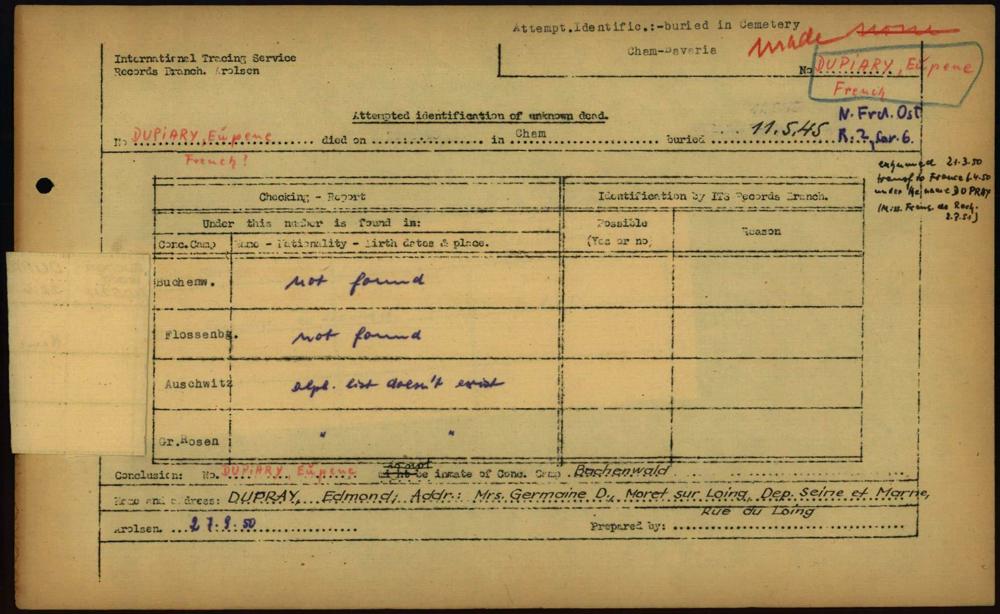 Attempt.Identific.:-buried in Cemetery
Cham-Bavaria made none
International Tracing Service
Records Branch. Arolsen
No DUPIARY, Eŭpene
French
Attempted identification of unknown dead.
N. Frd. Ost
R. 2, Gr. 6.
No DUPIARY, Eŭpene died on in Cham buried 11.5.45
French!
exhumed 21.3.50
transf. to France 6.4.50
under the name DUPRAY
Checking - Report
Identification by ITS Records Branch.
Under this number is found in:
Possible
(Yes or no)
Reason
Conc.Camp
Name - Nationality - Birth dates & place.
Buchenw. not found
Flossenbg. not found
Auschwitz alph. list doesn't exist
Gr.Rosen " "
Conclusion: No. DUPIARY, Eŭpene might be inmate of Conc. Camp Buchenwald
Name and address: DUPRAY, Edmond, Addr.: Mrs. Germaine D., Moret sur Loing, Dep. Seine et Marne,
Rue du Loing
Arolsen. 27.9.50 Prepared by: